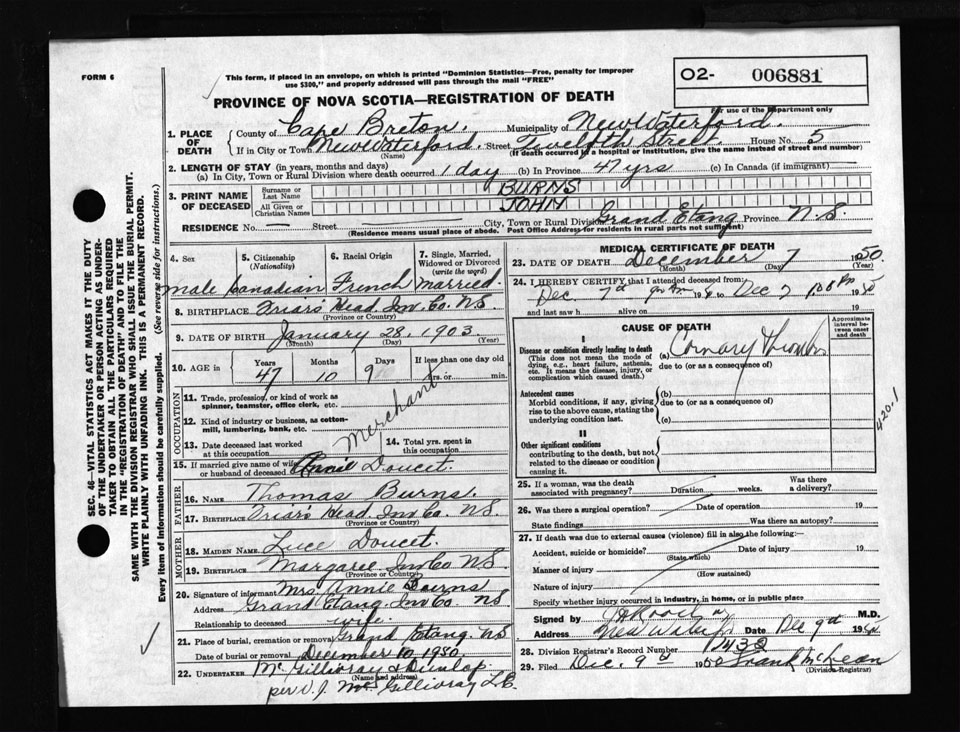 FORM 6
This form, if placed in an envelope, on which is printed "Dominion Statistics—Free, penalty for improper
use $300," and properly addressed will pass through the mail "FREE"
O2- 006881
For use of the Department only
PROVINCE OF NOVA SCOTIA—REGISTRATION OF DEATH
1. PLACE OF DEATH
County of Cape Breton Municipality of New Waterford.
If in City or Town New Waterford. Street Twelfth Street. House No. 5
(Name) (If death occurred in a hospital or institution, give the name instead of street and number)
2. LENGTH OF STAY (in years, months and days)
(a) In City, Town or Rural Division where death occurred 1 day (b) in Province 47 yrs (c) in Canada (if immigrant)
3. PRINT NAME OF DECEASED
Surname or Last Name BURNS
All Given or Christian Names JOHN
RESIDENCE No. — Street City, Town or Rural Division Grand Etang Province N.S.
(Residence means usual place of abode. Post Office Address for residents in rural parts not sufficient)
4. Sex male
5. Citizenship (Nationality) Canadian
6. Racial Origin French
7. Single, Married, Widowed or Divorced (write the word) married.
8. BIRTHPLACE Friar's Head Inv. Co. N.S.
(Province or Country)
9. DATE OF BIRTH January 28, 1903.
(Month) (Day) (Year)
10. AGE in Years 47 Months 10 Days 9 If less than one day old hrs. or min.
OCCUPATION
11. Trade, profession, or kind of work as
spinner, teamster, office clerk, etc.
Merchant
12. Kind of industry or business, as cotton-
mill, lumbering, bank, etc.
13. Date deceased last worked
at this occupation
14. Total yrs. spent in
this occupation
15. If married give name of wife
or husband of deceased Annie Doucet.
FATHER
16. NAME Thomas Burns.
17. BIRTHPLACE Friar's Head Inv. Co. N.S.
(Province or Country)
MOTHER
18. MAIDEN NAME Luce Doucet.
19. BIRTHPLACE Margaree Inv Co N.S.
(Province or Country)
20. Signature of informant Mrs. Annie Burns
Address Grand Etang. Inv Co. NS
Relationship to deceased wife.
21. Place of burial, cremation or removal Grand Etang. NS
Date of burial or removal December 10, 1950.
22. UNDERTAKER McGillivray & Dunlop
(Name and address)
per McGillivray
MEDICAL CERTIFICATE OF DEATH
23. DATE OF DEATH December 7 1950.
(Month) (Day) (Year)
24. I HEREBY CERTIFY that I attended deceased from:
Dec 7th to Dec 7 1950
and last saw h alive on 19
CAUSE OF DEATH
Approximate interval between onset and death
I
Disease or condition directly leading to death
(This does not mean the mode of
dying, e.g., heart failure, asthenia,
etc. It means the disease, injury, or
complication which caused death.)
(a) Cornary Thrombs
due to (or as a consequence of)
Antecedent causes
Morbid conditions, if any, giving
rise to the above cause, stating the
underlying condition last.
(b)
due to (or as a consequence of)
(c)
II
Other significant conditions
contributing to the death, but not
related to the disease or condition
causing it.
420.1
25. If a woman, was the death
associated with pregnancy? Duration weeks. Was there
a delivery?
26. Was there a surgical operation? Date of operation 19
State findings Was there an autopsy?
27. If death was due to external causes (violence) fill in also the following:—
Accident, suicide or homicide? Date of injury 19
(State which)
Manner of injury
(How sustained)
Nature of injury
Specify whether injury occurred in industry, in home, or in public place
Signed by M.D.
Address New Waterf Date Dec 9th 1950
28. Division Registrar's Record Number 1432
29. Filed Dec. 9th 1950 Frank McLean
(Division Registrar)
SEC. 46—VITAL STATISTICS ACT MAKES IT THE DUTY
OF THE UNDERTAKER OR PERSON ACTING AS UNDER-
TAKER TO OBTAIN ALL THE PARTICULARS REQUIRED
IN THE "REGISTRATION OF DEATH" AND TO FILE THE
SAME WITH THE DIVISION REGISTRAR WHO SHALL ISSUE THE BURIAL PERMIT.
WRITE PLAINLY WITH UNFADING INK. THIS IS A PERMANENT RECORD.
Every item of information should be carefully supplied. (See reverse side for instructions.)